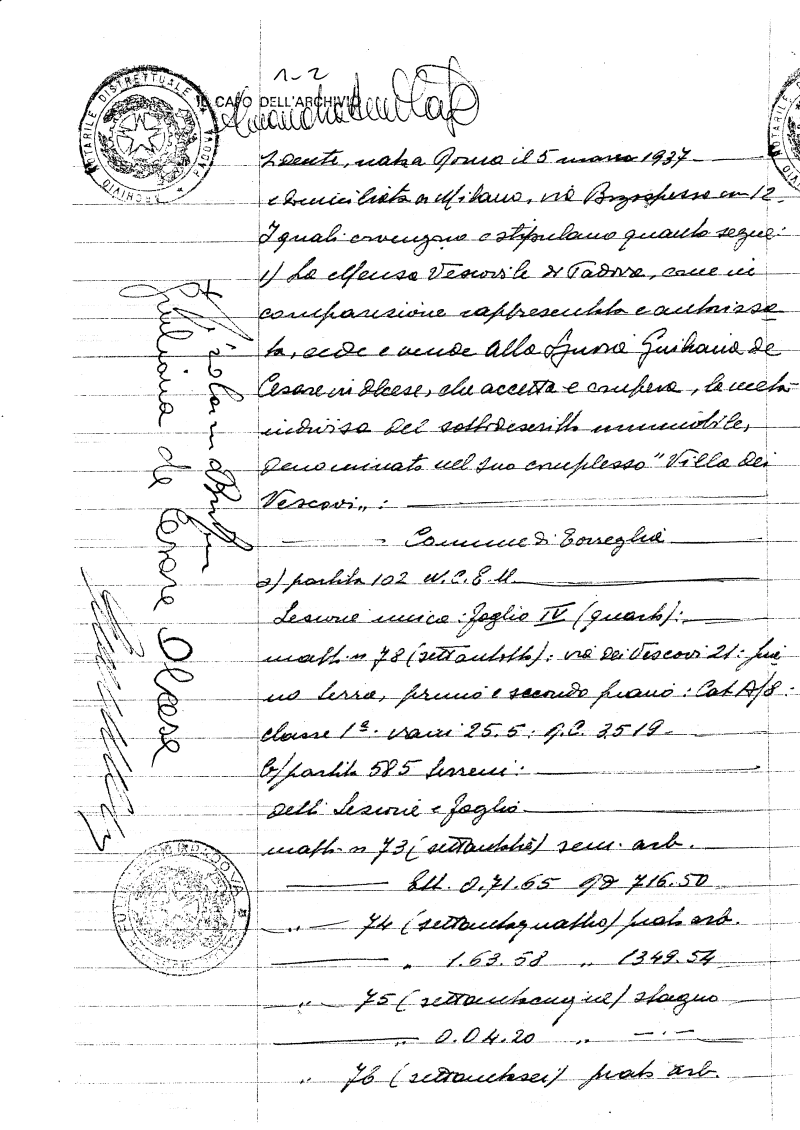 1-2
ARCHIVIO NOTARILE DISTRETTUALE * PADOVA *
IL CAPO DELL'ARCHIVIO
dente, nata a Roma il 5 marzo 1937
e domiciliata a Milano, via 12.
I quali convengono e stipulano quanto segue:
1) La Mensa Vescovile di Padova, come in
comparizione rappresentata e autorizza-
ta, cede e vende alla Signora Giuliana de
Cesare in Olcese, che accetta e compera, la metà
indivisa del sottodescritto immobile,
denominato nel suo complesso "Villa dei
Vescovi„:
Comune di Torreglia
a) partita 102 N.C.E.U.
Sezione unica: foglio IV (quarto):
mapp. n 78 (settantotto): via dei Vescovi 21: pia
no terra, primo e secondo piano: Cat A/8:
classe 1ª vani 25.5: R.C. 3519
b) partita 585 terreni:
detti Sezione e foglio
mapp. n 73 (settantatrè) sem. arb.
Ett. 0.71.65 RD 716.50
„ 74 (settantaquattro) prato arb.
„ 1.63.58 „ 1349.54
„ 75 (settantacinque) stagno
„ 0.04.20 „ —.—
„ 76 (settantasei) prato arb.
Giuliana de Cesare Olcese